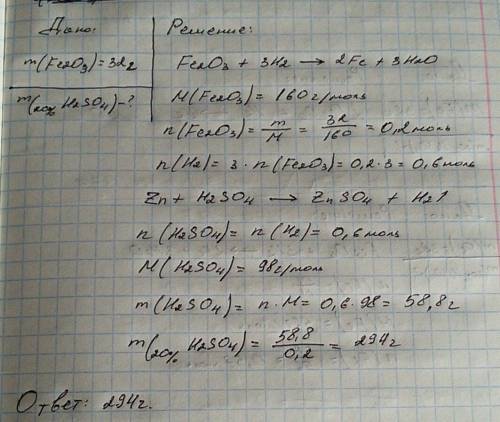 Дано:
m(Fe2O3)=32г
m(20% H2SO4)-?
Решение:
Fe2O3 + 3H2 → 2Fe + 3H2O
M(Fe2O3)= 160г/моль
n(Fe2O3)= m/M = 32/160 = 0,2моль
n(H2)= 3 · n(Fe2O3)= 0,2·3= 0,6моль
Zn + H2SO4 → ZnSO4 + H2↑
n(H2SO4)= n(H2)= 0,6моль
M(H2SO4)= 98г/моль
m(H2SO4)= n·M= 0,6·98= 58,8г
m(20% H2SO4)= 58,8/0,2 = 294г
Ответ: 294г.